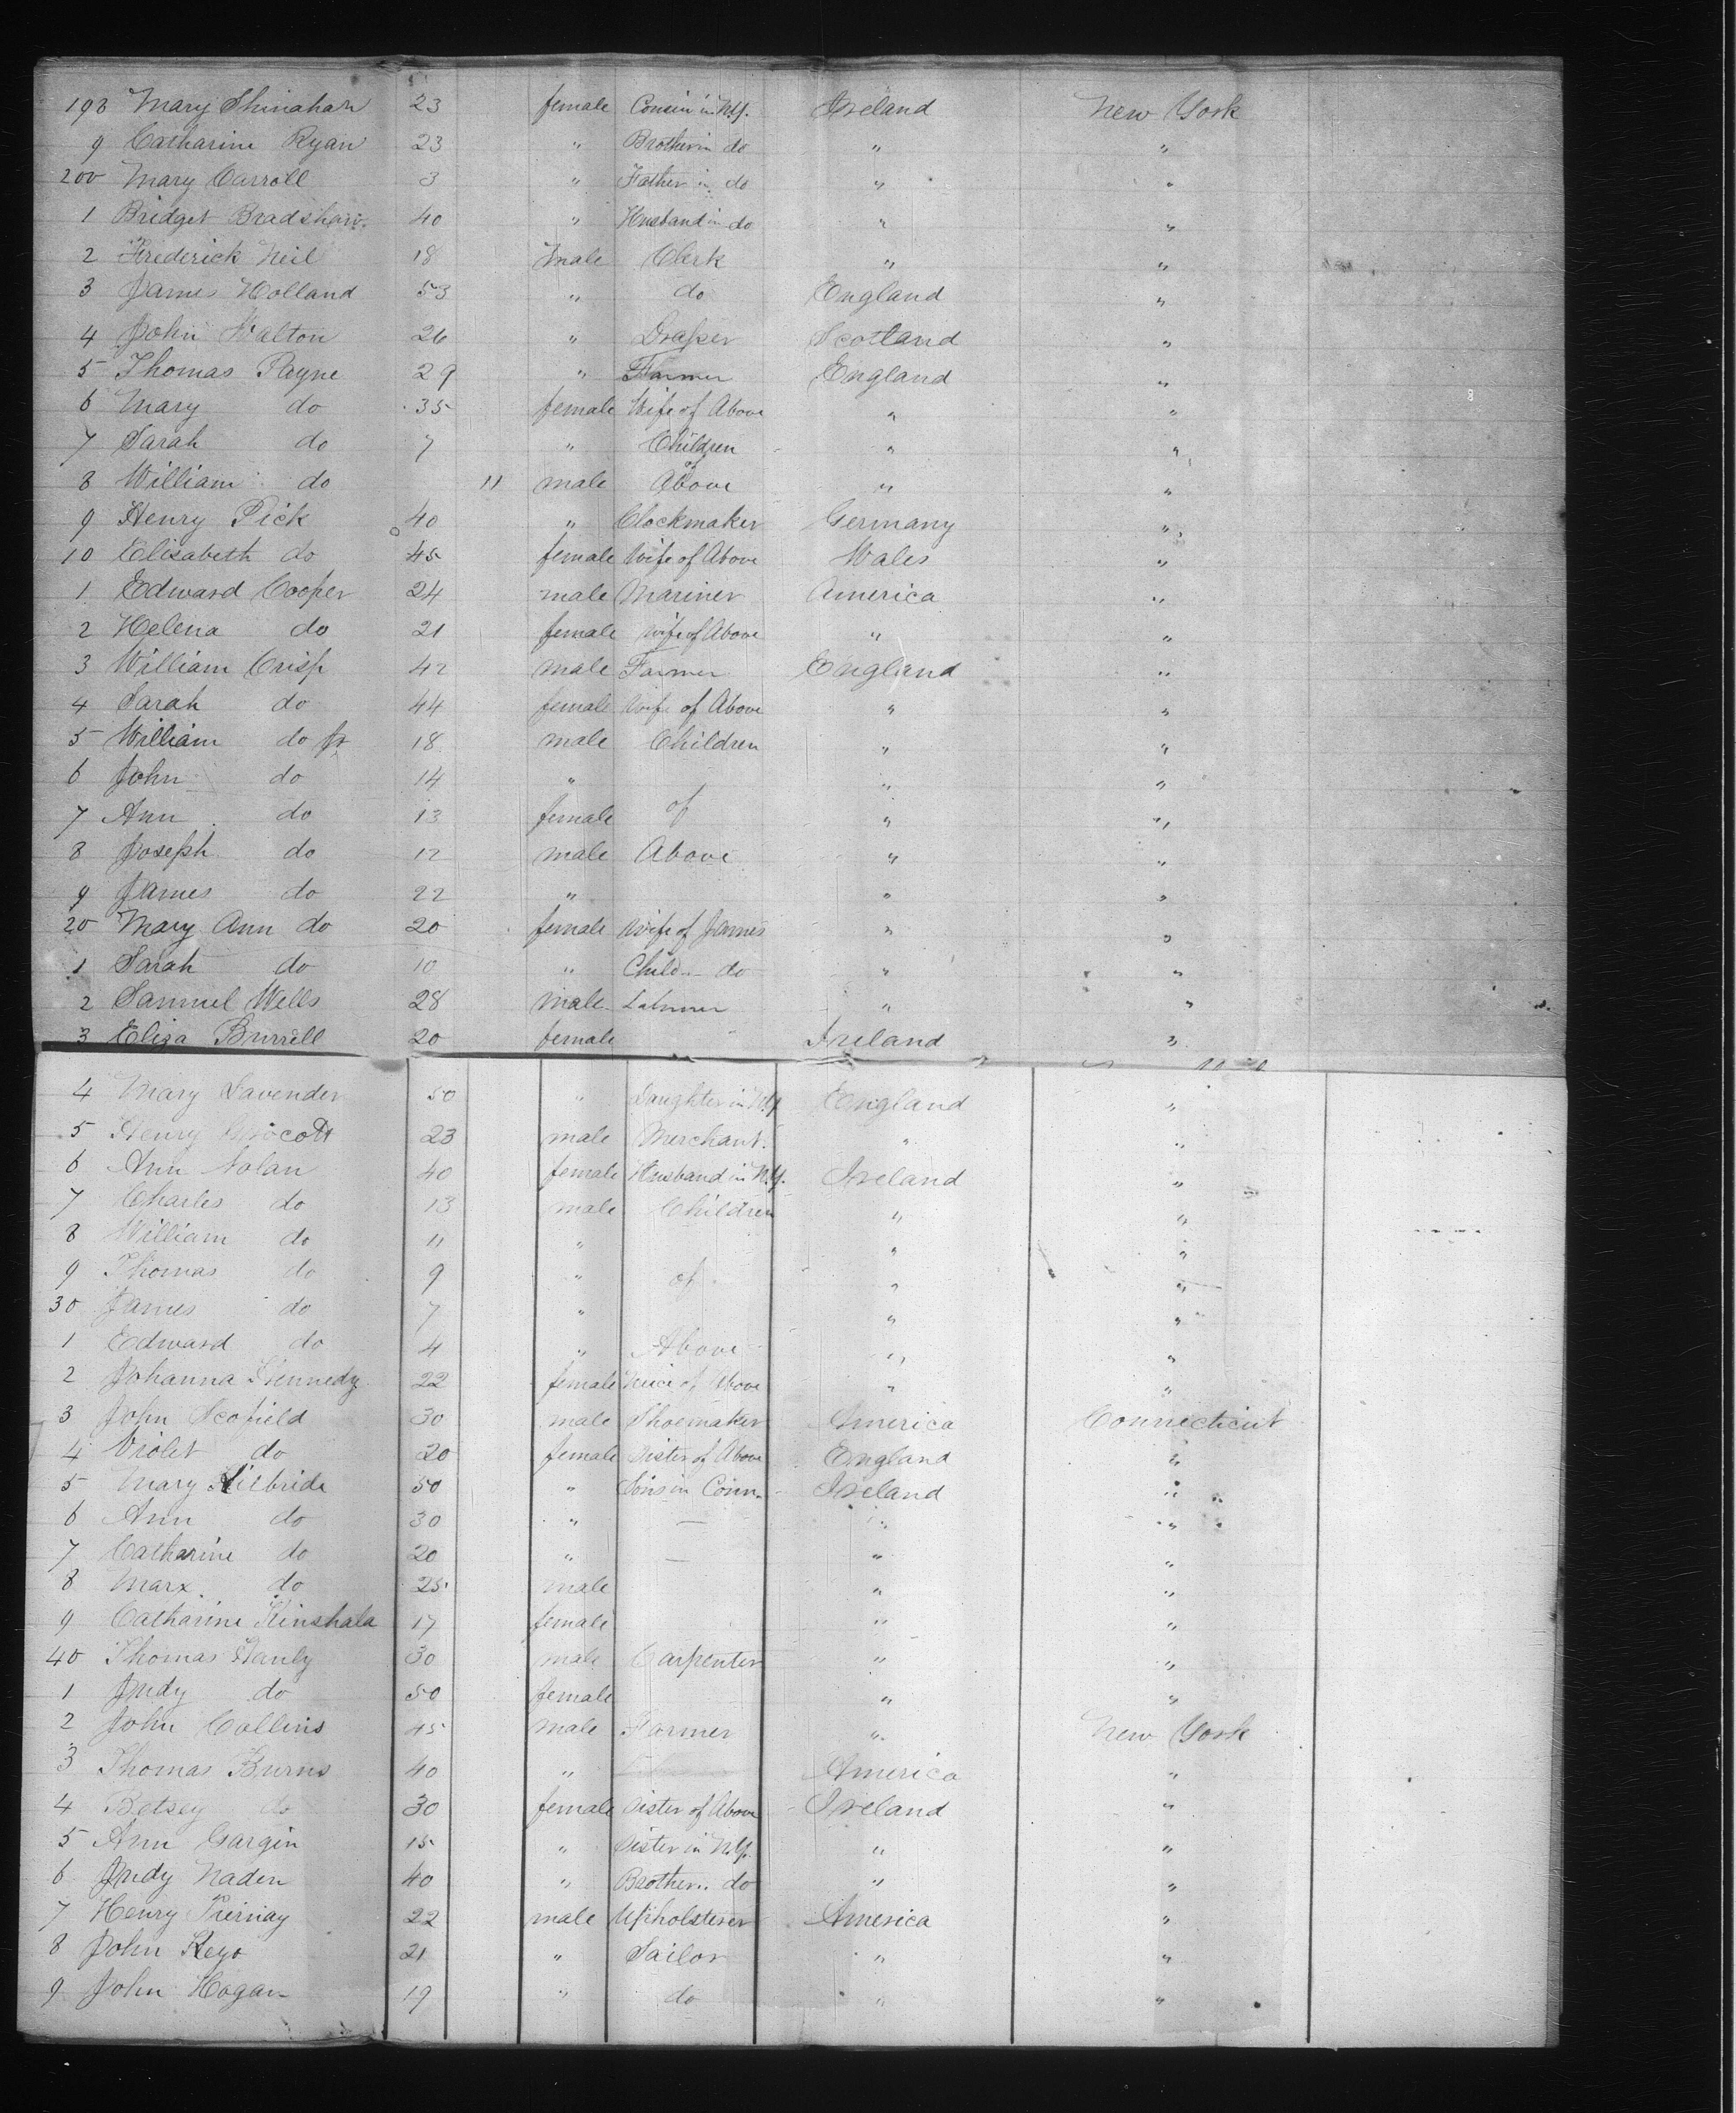 198 Mary Shinahan 23 female Cousin in N.Y. Ireland New York
9 Catharine Ryan 23 " Brother in do " "
200 Mary Carroll 3 " Father in do " "
1 Bridget Bradshaw 40 " Husband in do " "
2 Frederick Neil 18 Male Clerk " "
3 James Holland 53 " do England "
4 John Walton 26 " Draper Scotland "
5 Thomas Payne 29 " Farmer England "
6 Mary do 35 female Wife of Above " "
7 Sarah do 7 " Children " "
of
8 William do 11 male Above " "
9 Henry Pick 40 " Clockmaker Germany "
10 Elisabeth do 45 female Wife of Above Wales "
1 Edward Cooper 24 male Mariner America "
2 Helena do 21 female wife of Above " "
3 William Crisp 42 male Farmer England "
4 Sarah do 44 female Wife of Above " "
5 William do Jr 18 male Children " "
6 John do 14 " " "
7 Ann do 13 female of " "
8 Joseph do 12 male Above " "
9 James do 22 " " "
20 Mary Ann do 20 female Wife of James " "
1 Sarah do 10 " Child " do " "
2 Samuel Wells 28 Male Labourer " "
3 Eliza Burrell 20 female Ireland "
4 Mary Lavender 50 " Daughter in N.Y. England "
5 Henry 23 male Merchant " "
6 Ann Nolan 40 female Husband in N.Y. Ireland "
7 Charles do 13 male Children " "
8 William do 11 " " "
9 Thomas do 9 " of " "
30 James do 7 " " "
1 Edward do 4 " Above " "
2 Johanna Kennedy 22 female Neice of Above " "
3 John Scofield 30 male Shoemaker America Connecticut
4 Violet do 20 female Sister of Above England "
5 Mary Kilbride 50 " Sons in Conn. Ireland "
6 Ann do 30 " — " "
7 Catharine do 20 " — " "
8 Marx do 25 male " "
9 Catharine Kinshala 17 female " "
40 Thomas Hanly 30 male Carpenter " "
1 Judy do 50 female " "
2 John Collins 45 male Farmer " New York
3 Thomas Burns 40 " America "
4 Betsey do 30 female Sister of Above Ireland "
5 Ann Gargin 15 " Sister in N.Y. " "
6 Judy Naden 40 " Brother " do " "
7 Henry 22 male Upholsterer America "
8 John Keyo 21 " Sailor " "
9 John Hogan 19 " do " "